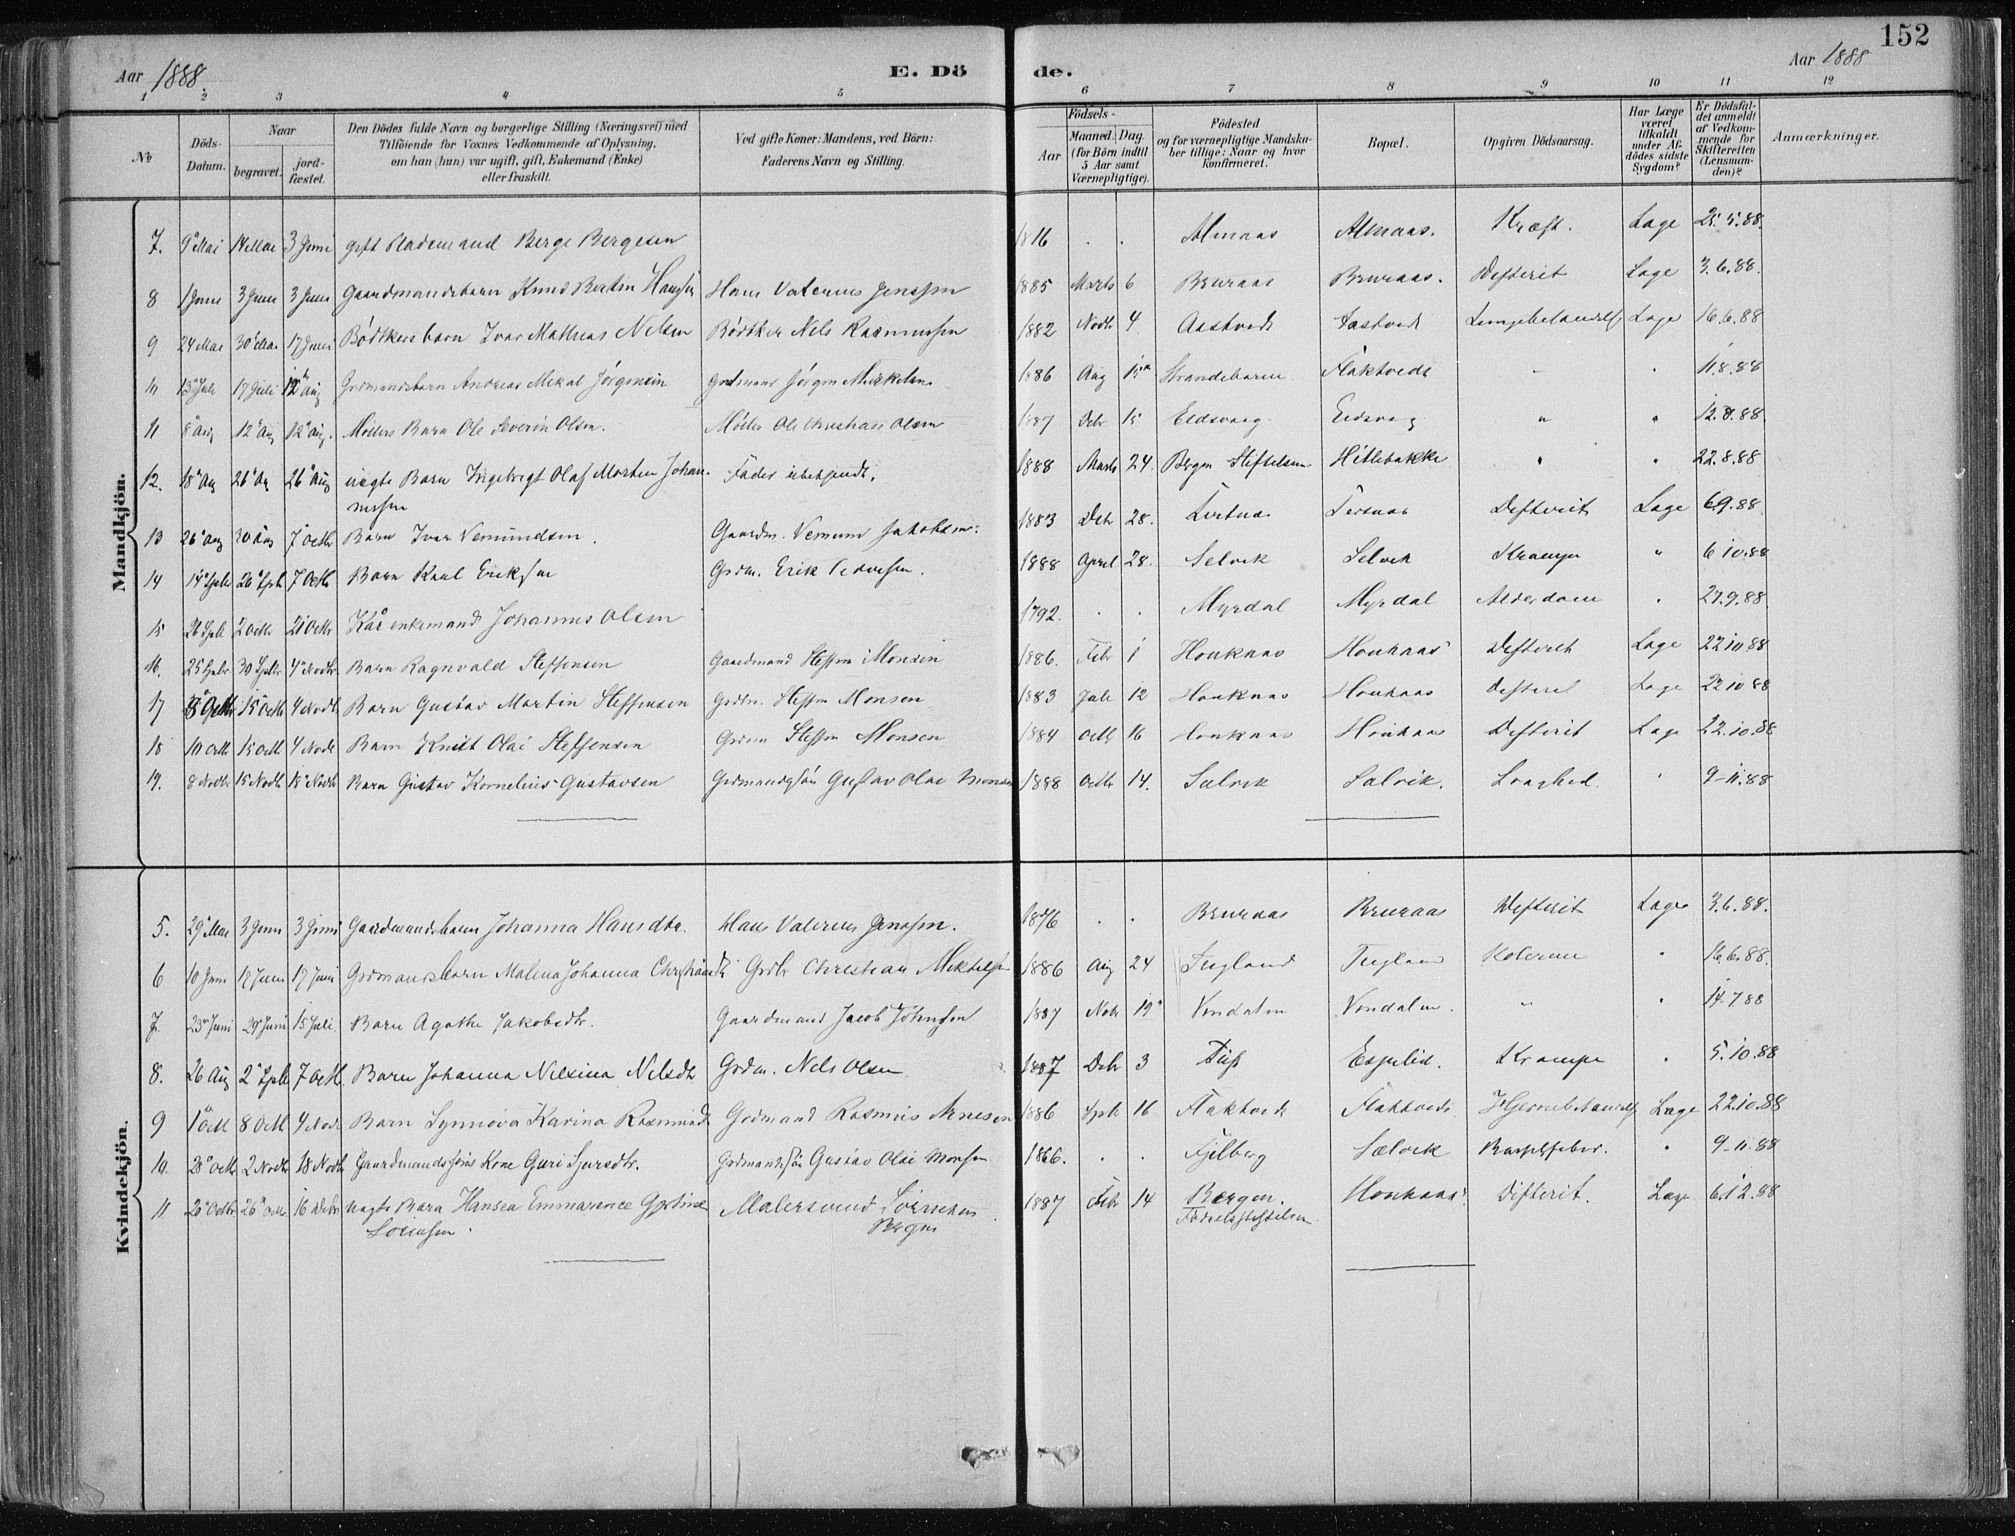 152
Aar 1888.
E. Dö de.
Aar 1888
1 2 3 4 5 6 7 8 9 10 11 12
№
Döds-Datum.
Naar
begravet.
jord-fæstet.
Den Dödes fulde Navn og borgerlige Stilling (Næringsvei) med
Tilföiende for Voxnes Vedkommende af Oplysning,
om han (hun) var ugift, gift, Enkemand (Enke)
eller fraskilt.
Ved gifte Koner: Mandens, ved Börn:
Faderens Navn og Stilling.
Födsels-
Aar
Maaned. Dag.
(for Börn indtil
5 Aar samt
Værnepligtige).
Födested
og for værnepligtige Mandska-
ber tillige: Naar og hvor
konfirmeret.
Bopæl.
Opgiven Dödsaarsag.
Har Læge
været
tilkaldt
under Af-
dödes sidste
Sygdom?
Er Dödsfal-
det anmeldt
af Vedkom-
mende for
Skifteretten
(Lensman-
den)?
Anmærkninger.
Mandkjön.
7. 9 Mai 14 Mai 3 Juni gift Berge Bergesen 1816 . . Almaas Almaas. Kræft. Læge 25.5.88.
8 1 Juni 3 Juni 3 Juni Gaardmandsbarn Knud Bertin Hansen Hans Valerius Jenssen 1885 Marts 6 Bruraas Bruraas. Difterit Læge 3.6.88.
9 24 Mai 30 Mai 17 Juni Bødtkersbarn Ivar Mathias Nilsen Bødtker Nels Rasmussen 1882 Novbr 4 Aastvedt Aastvedt Læge 16.6.88
10 13 Juli 17 Juli 12 Aug Grdmandsbarn Andreas Mikal Jørgensen Grdmand Jørgen Mikkelsen 1886 Aug 15 Strandebarm Flaktvedt 11.8.88
11 8 Aug 12 Aug 12 Aug. Møllers Barn Ole Severin Olsen. Møller Ole Christian Olsen 1887 Debr 15 Eidsvaag Eidsvaag " " 12.8.88.
12. 18 Aug 26 Aug 26 Aug uægte Barn Ingebrigt Olaf Morten Johan-
nessen Fader ubekjendt. 1888 Marts 24. Bergen Stiftelsen Hitlebakke " " 22.8.88
13 26 Aug 30 Aug 7 Octbr Barn Ivar Vemundsen. Gaardm. Vemund Jakobsen. 1883 Debr 28. Difterit Læge 6.9.88
14 14 Septbr 20 Septb 7 Octb Barn Karl Eriksen Grdm. Erik Pedersen. 1888 April 28. Selvik Selvik Krampe " 6.10.88
15 26 Septb 2 Octbr 21 Octbr Kår enkemand Johannes Olsen 1792. . . Myrdal Myrdal Alderdom 27.9.88
16. 25 Septbr 30 Septbr 4 Novbr. Barn Ragnvald Steffensen Gaardmand Steffen Monsen 1886. Febr 1 Houknæs Houknæs Difterit Læge 22.10.88
17 8 Octbr 15 Octb 4 Novbr Barn Gustav Martin Steffensen Grdm. Steffen Monsen 1883 Juli 12 Houknæs Houknæs Difterit Læge 22.10.88
18 10 Octb 15 Octb 4 Novb Barn Knut Olai Steffensen Grdm Steffen Monsen 1884 Octb 16 Houknæs Houknæs Difterit Læge 22.10.88
19. 8 Novbr 15 Novb 18 Novbr Barn Gustav Kornelius Gustavsen Grdmandssøn Gustav Olai Monsen 1888 Octbr 14. Sælvik Sælvik. Svaghed. 9-11.88
Kvindekjön.
5. 29 Mai 3 Juni 3 Juni Gaardmandsbarn Johanna Hansdtr. Hans Valerius Jenssen. 1876 . . Bruraas Bruraas Difterit Læge 3.6.88.
6 10 Juni 17 Juni 17 Juni Grdmandsbarn Malena Johanna Christiansdtr Grdbr Christian Mikkelsen 1886 Aug 24 Fugland Fugland Kolerine 16.6.88.
7. 23 Juni 29 Juni 15 Juli. Barn Agathe Jakobsdtr. Gaardmand Jacob Johnsen 1887 Nobr 19 Vindalen Vindalen. " 14.7.88
8. 26 Aug 2 Septb 7 Octb Barn Johanna Nilsina Nilsdtr Grdm. Nels Olsen 1887 Debr 3 Espelid. Krampe 5.10.88
9 1 Octb 8 Octb 4 Novb. Barn Synnøva Karina Rasmusdtr Grdmand Rasmus Arnesen 1886 Septb 16 Flaktvedt Flaktvedt. Hjernebetændelse Læge 22.10.88
10. 28 Octb 2 Novbr 18 Novb Gaardmandssøns Kone Guri Sjursdtr. Grdmandssøn Gustav Olai Monsen 1866. . . Fjelberg Sælvik Barselfeber. " 9-11-88
11. 20 Octbr 26 Octbr 16 Decbr uægte Barn Hansea Emmarence Gjertine
Sørensen. Malersvend Sørensen
Bergen 1887 Febr 14 Bergen.
Fødselsstiftelsen. Houknæs Difterit. Læge 6.12.88